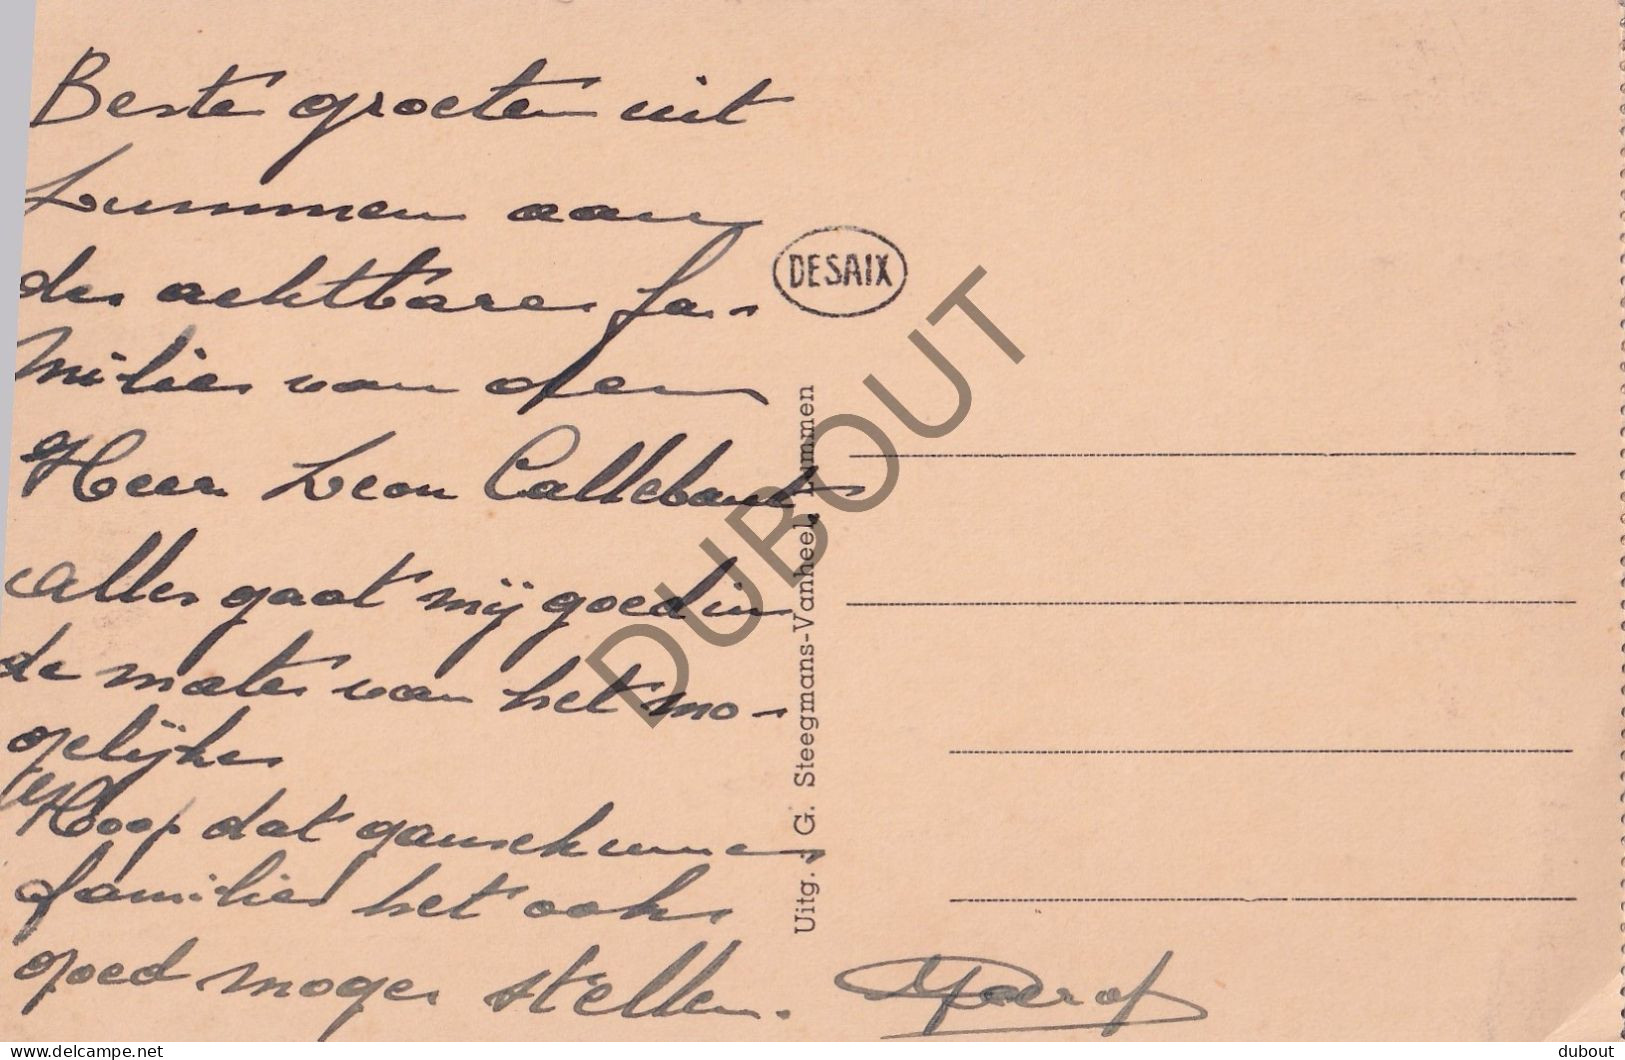 Beste groeten uit
Lummen aan
de achtbare fa-
milie van den
Heer Leon Callebaut
Alles gaat mij goed in
de mate van het mo-
gelijke
Hoop dat gansch uwe
familie het ook
goed moge stellen.
DESAIX
Uitg. : G. Steegmans-Vanheel, Lummen
DUBOUT
delcampe.net
dubout